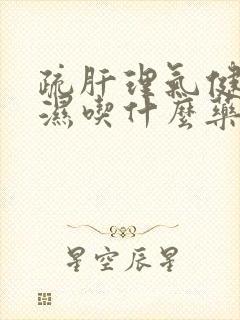 疏肝理氣健
濕喫什麼藥
星空辰星